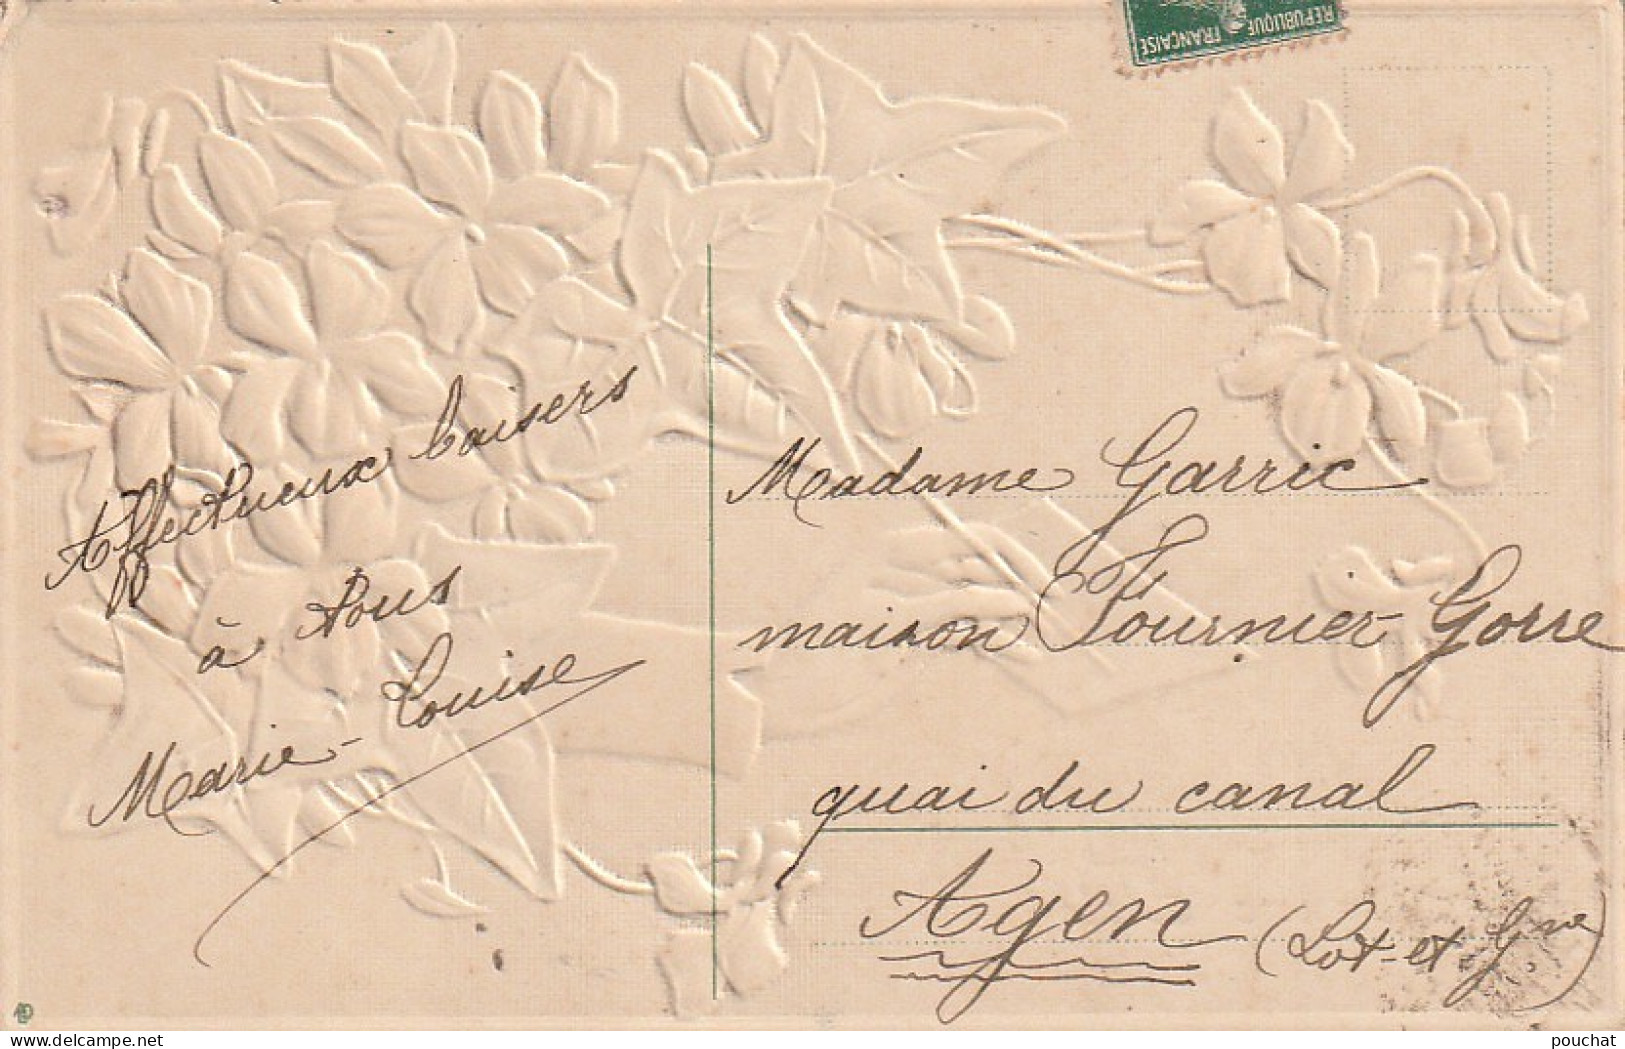 RÉPUBLIQUE
FRANÇAISE
Affectueux baisers
à tous
Marie-Louise
Madame Garric
maison Fournier Gorre
quai du canal
Agen (Lot-et-Gne)
delcampe.net
pouchat